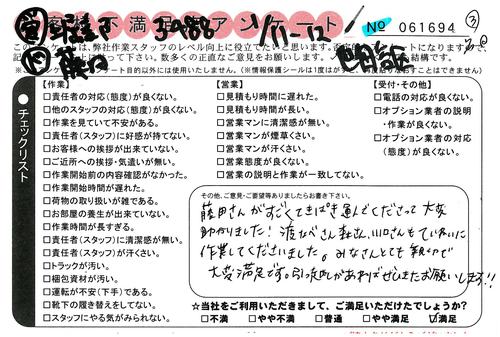 お客様不満足アンケート
No 061694
③
34988
1/11-12
このアンケートは、弊社作業スタッフのレベル向上に役立てたいと思います。
【作業】
□責任者の対応(態度)が良くない。
□他のスタッフの対応(態度)が良くない。
□作業を見ていて不安がある。
□責任者(スタッフ)に好感が持てない。
□お客様への挨拶が出来ていない。
□ご近所への挨拶・気遣いが無い。
□作業開始前の内容確認がなかった。
□作業開始時間が遅れた。
□荷物の取り扱いが雑である。
□お部屋の養生が出来ていない。
□作業時間が長すぎる。
□責任者(スタッフ)に清潔感が無い。
□責任者(スタッフ)が汗くさい。
□トラックが汚い。
□梱包資材が汚い。
□運転が不安(下手)である。
□靴下の履き替えをしてない。
□スタッフにやる気がみられない。
【営業】
□見積もり時間に遅れた。
□見積もり時間が長い。
□営業マンに清潔感が無い。
□営業マンが煙草くさい。
□営業マンが汗くさい。
□営業態度が良くない。
□営業の説明と作業が一致してない。
【受付・その他】
□電話の対応が良くない。
□オプション業者の説明・作業が良くない。
□オプション業者の対応(態度)が良くない。
●チェックリスト
その他、ご意見・ご要望等ありましたらお書き下さい。
藤田さんがすごくてきぱき運んでくださって大変
助かりました! 渡なべさん 川口さんもていねいに
作業してくださいました。みなさんとても親切で
大変満足です。引っ越しがあればぜひまたお願いします!!
☆当社をご利用いただきまして、ご満足いただけたでしょうか?
□不満 □やや不満 □普通 □やや満足 ☑満足